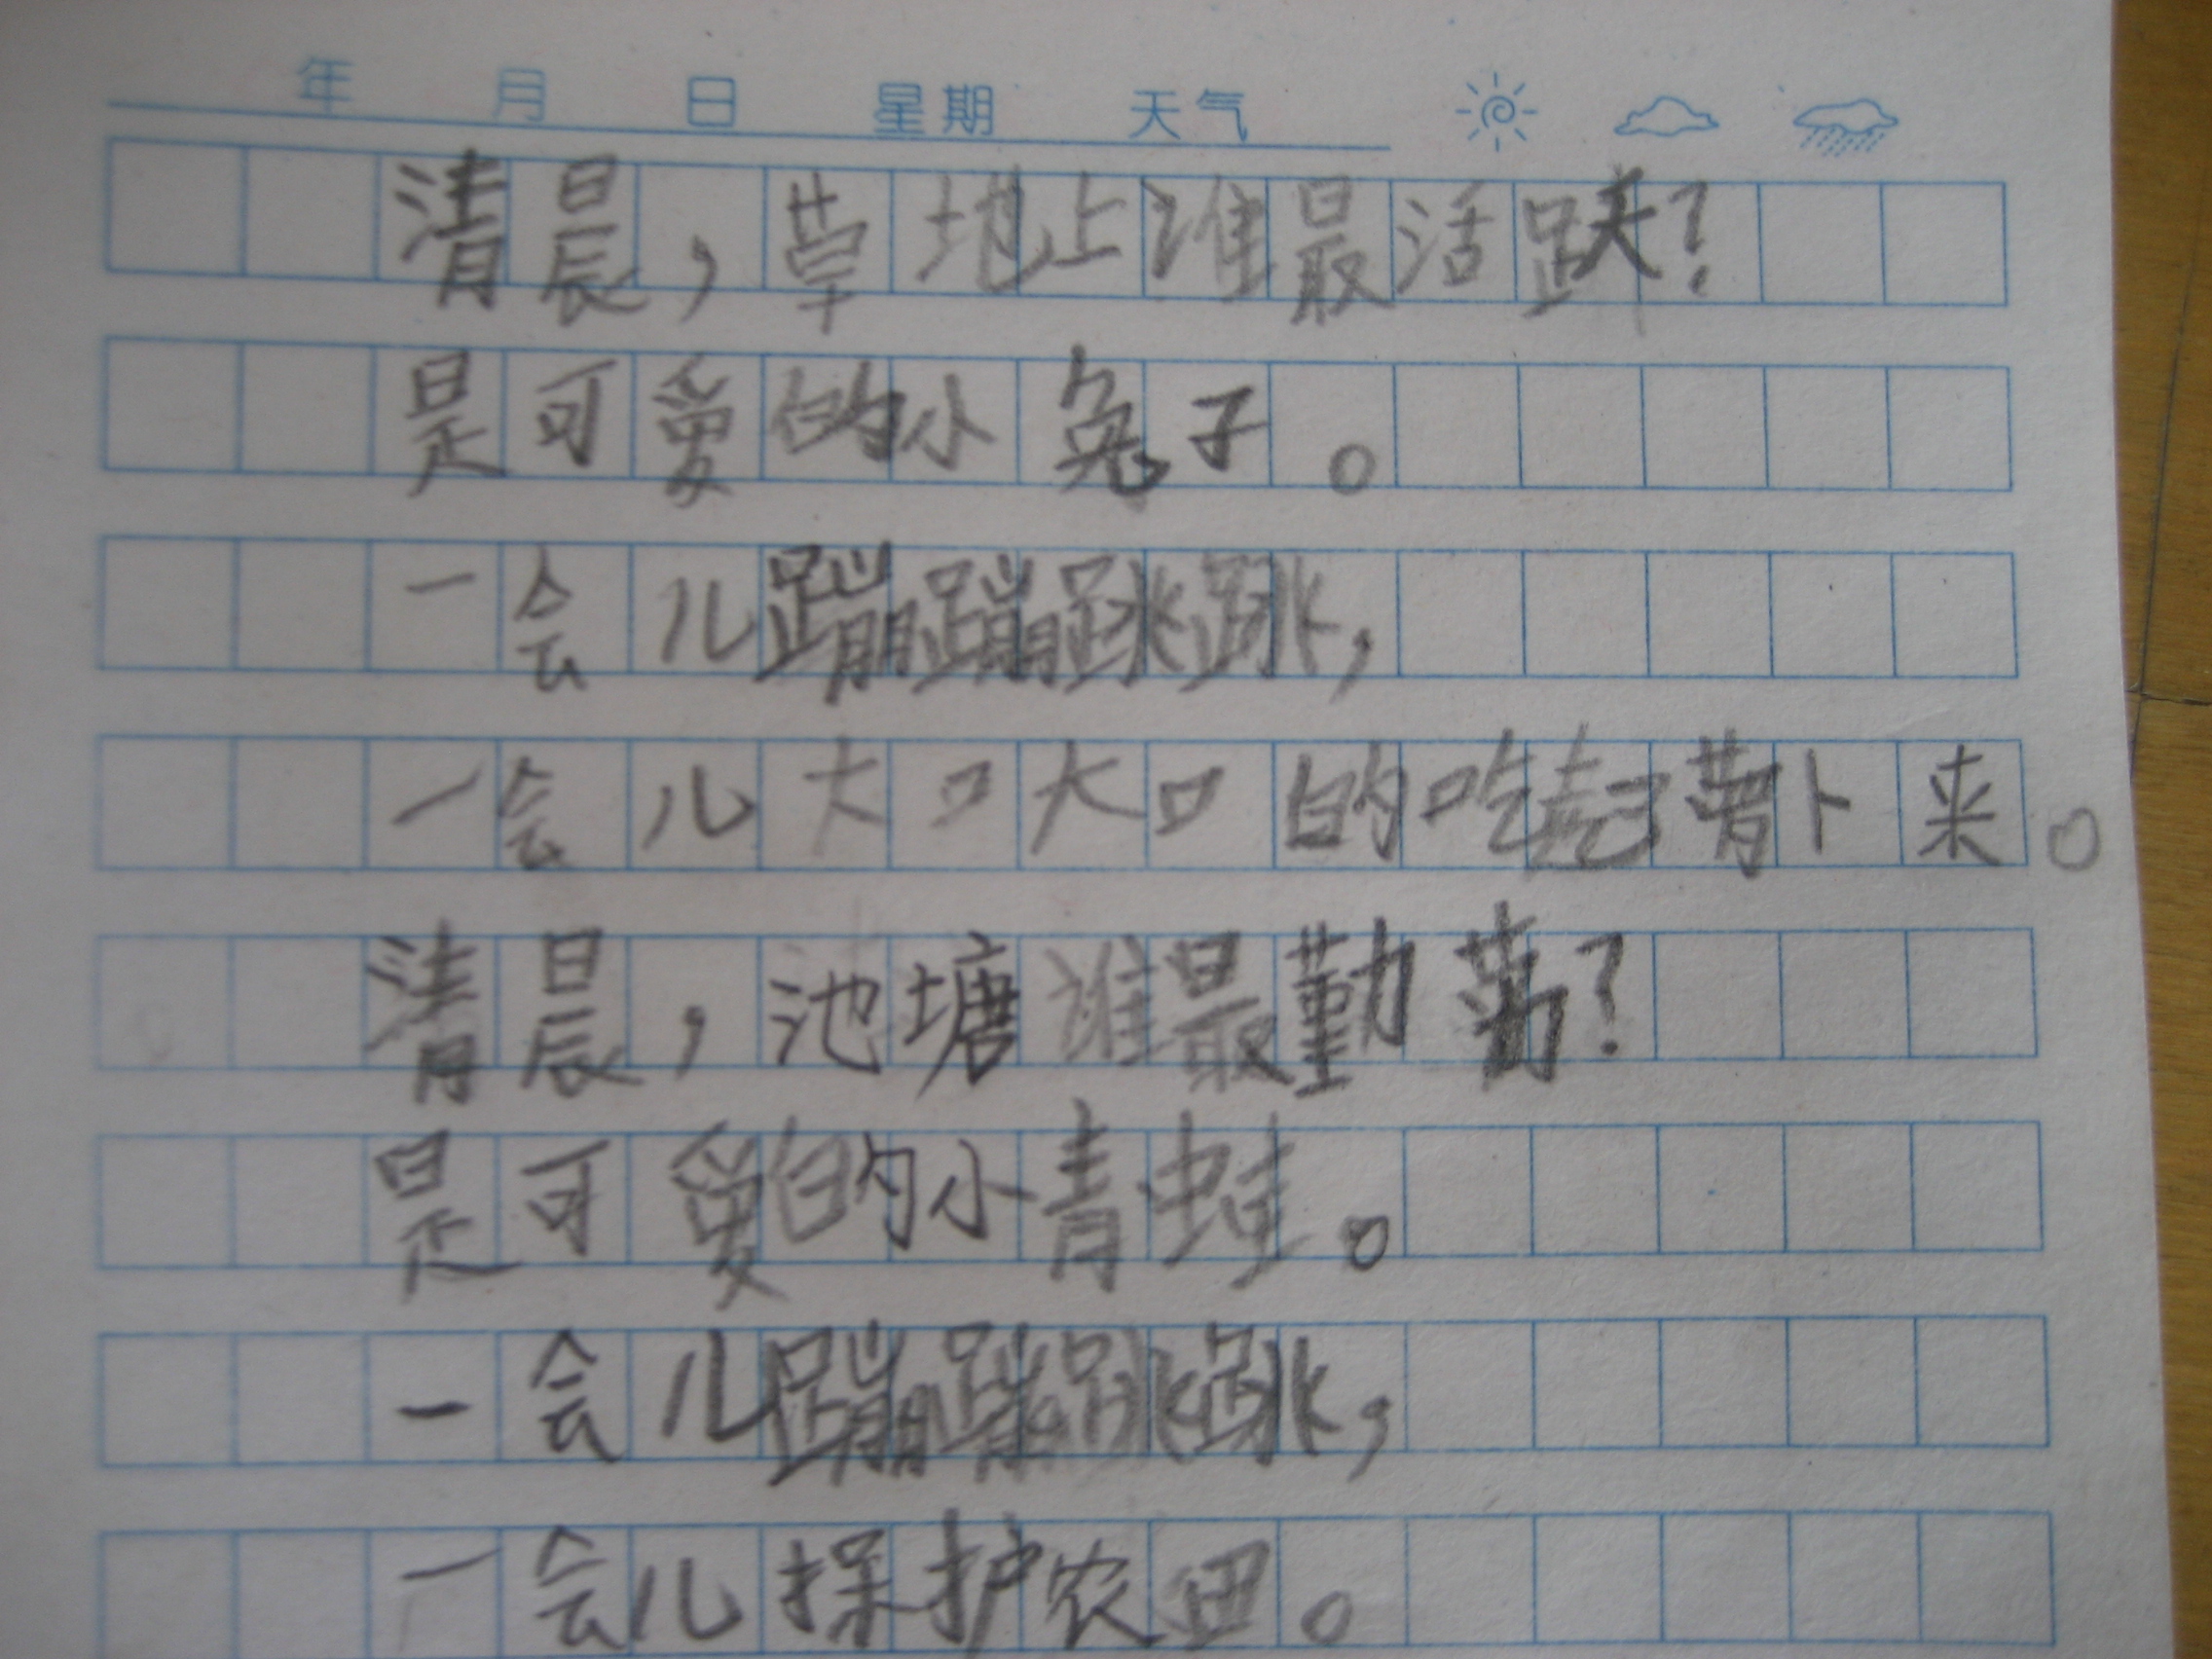 年 月 日 星期 天气
清晨，草地上谁最活跃？
是可爱的小兔子。
一会儿蹦蹦跳跳，
一会儿大口大口的吃起萝卜来。
清晨，池塘谁最勤劳？
是可爱的小青蛙。
一会儿蹦蹦跳跳，
一会儿保护农田。